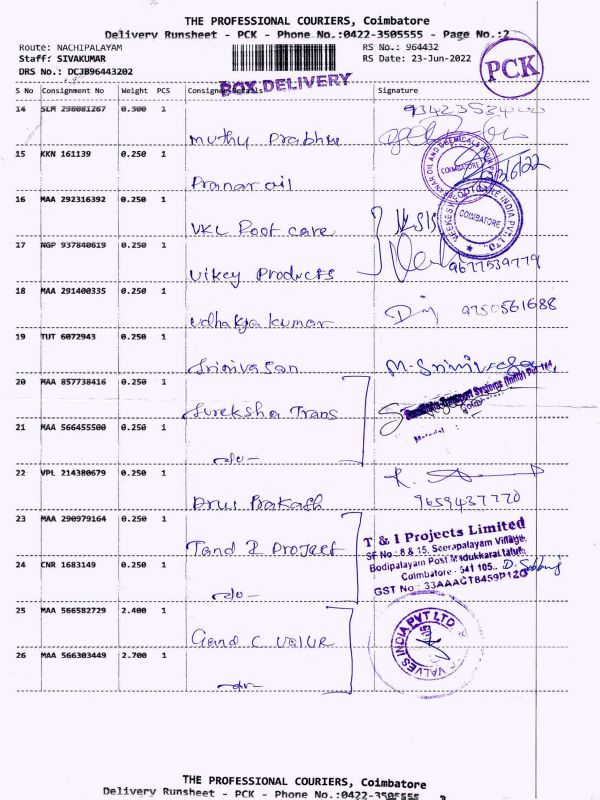 THE PROFESSIONAL COURIERS, Coimbatore
Delivery Runsheet - PCK - Phone No.:0422-3505555 - Page No.:2
Route: NACHIPALAYAM RS No.: 964432
Staff: SIVAKUMAR RS Date: 23-Jun-2022
DRS No.: DCJB96443202
PCK
BOX DELIVERY
S No Consignment No Weight PCS Signature
14 SLM 298081267 0.300 1
Muthu Prabhu
15 KKN 161139 0.250 1
Pranar oil
COIMBATORE
16 MAA 292316392 0.250 1
VKC Foot care
COIMBATORE
17 NGP 937840619 0.250 1
Vikey Products 9677539779
18 MAA 291400335 0.250 1
udhaya kumar 9750561688
19 TUT 6072943 0.250 1
Srinivasan M. Srinivasan
20 MAA 857738416 0.250 1
Sureksha Trans
21 MAA 566455500 0.250 1
-do-
22 VPL 214380679 0.250 1
9659437770
23 MAA 290979164 0.250 1
Tand I Project
T & I Projects Limited
SF No : 8 & 15, Seerapalayam Village,
Bodipalayam Post Madukkarai taluk,
Coimbatore - 641 105.
GST No : 33AAACT8459P1ZO
24 CNR 1683149 0.250 1
-do-
25 MAA 566582729 2.400 1
G and C valve
VALVES INDIA PVT LTD
26 MAA 566303449 2.700 1
-do-
THE PROFESSIONAL COURIERS, Coimbatore
Delivery Runsheet - PCK - Phone No.:0422-3505555